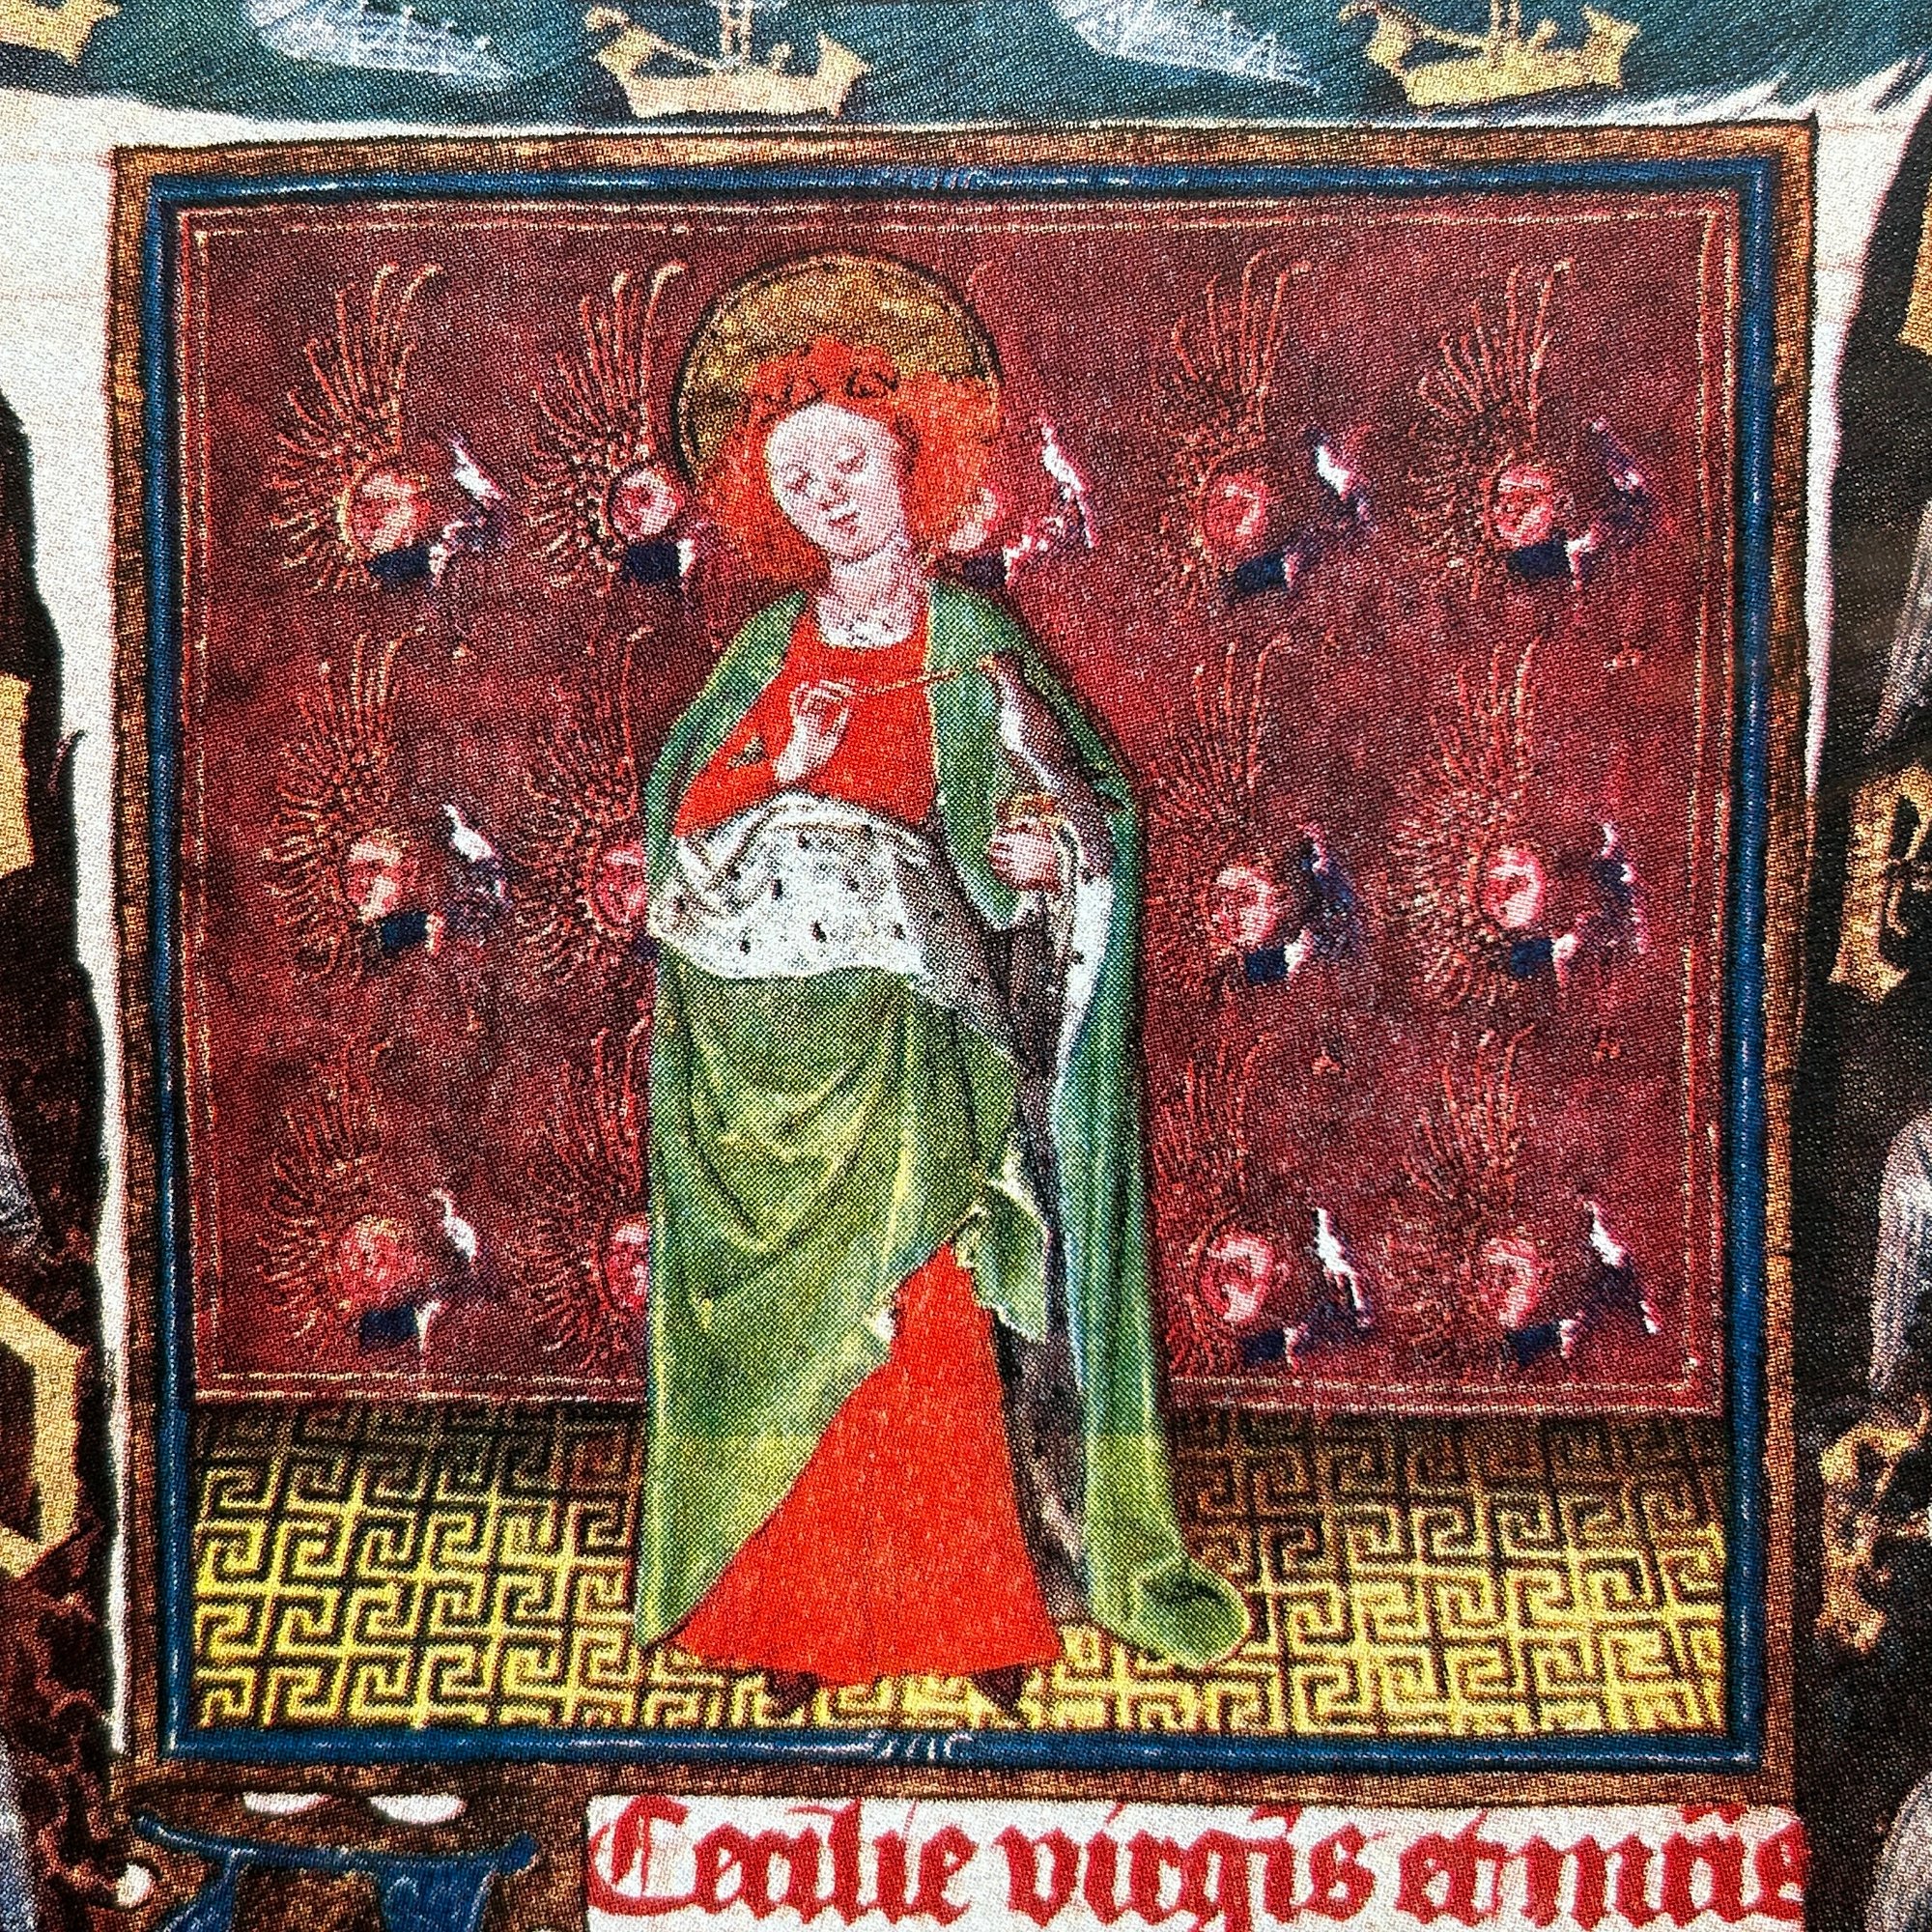 Cecilie virgis et mris